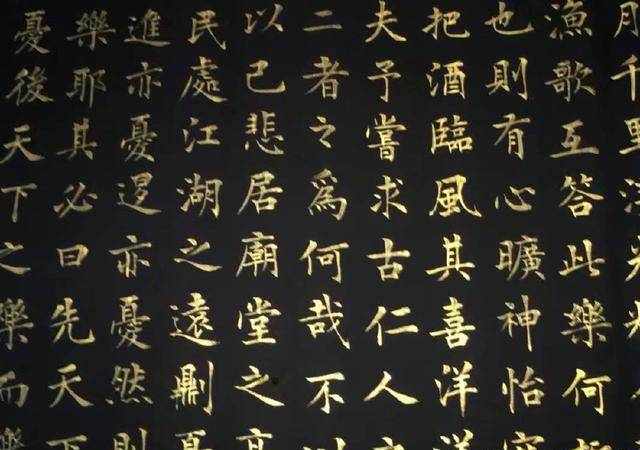 月千里浮光
漁歌互答此樂何
也則有心曠神怡
把酒臨風其喜洋洋
夫予嘗求古仁人之
二者之爲何哉不以
以己悲居廟堂之高
民處江湖之遠則憂
進亦憂退亦憂然則
樂耶其必曰先天下
憂後天下之樂而樂